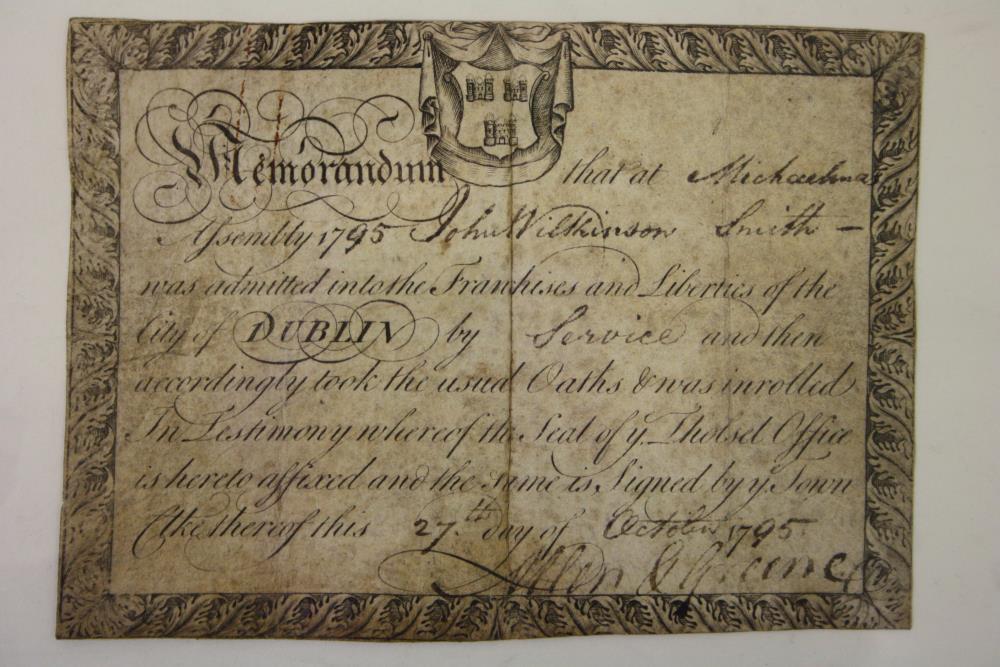 Memorandum that at Michaelmas
Assembly 1795 John Wilkinson Smith
was admitted into the Franchises and Liberties of the
City of DUBLIN by Service and then
accordingly took the usual Oaths & was inrolled
In Testimony whereof the Seal of y Tholsel Office
is hereto affixed and the same is Signed by y Town
Clke thereof this 27th day of October 1795
Allen & Greene